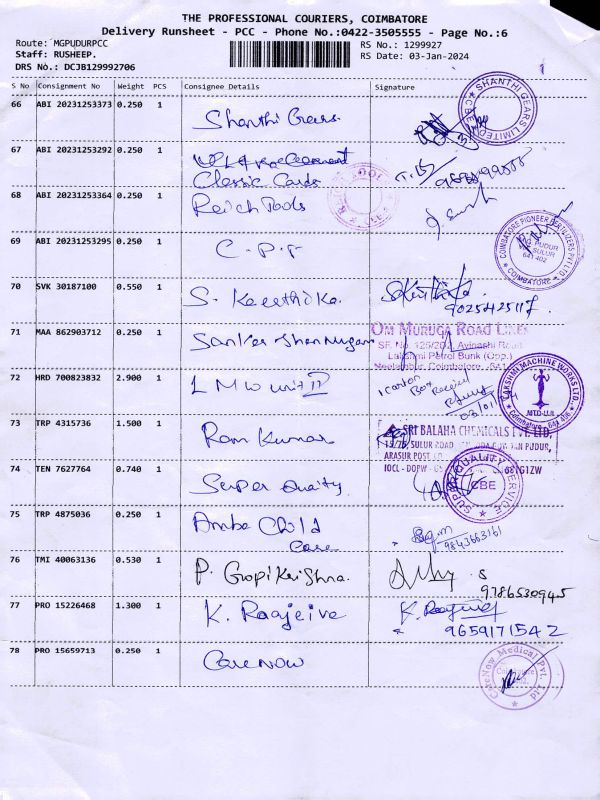 THE PROFESSIONAL COURIERS, COIMBATORE
Delivery Runsheet - PCC - Phone No.:0422-3505555 - Page No.:6
Route: MGPUDURPCC
Staff: RUSHEEP.
DRS No.: DCJB129992706
RS No.: 1299927
RS Date: 03-Jan-2024
S No Consignment No Weight PCS Consignee Details Signature
66 ABI 20231253373 0.250 1 Shanthi Gears
SHANTHI GEARS LIMITED
67 ABI 20231253292 0.250 1
Classic Cards
68 ABI 20231253364 0.250 1 Reich Tools
69 ABI 20231253295 0.250 1 C.P.F
COIMBATORE PIONEER FERTILIZERS PVT LTD
SULUR
641 402
COIMBATORE
70 SVK 30187100 0.550 1 S. Keerthika.
9025425117.
71 MAA 862903712 0.250 1 Sankar Shanmugam
OM MURUGA ROAD LINES
SF. No. 125/20, Avinashi Road
Lakshmi Petrol Bunk (Opp.)
Neelambur, Coimbatore
72 HRD 700823832 2.900 1 LMW unit II
1 carton
Box Received
LAKSHMI MACHINE WORKS LTD.,
MTD-U.II
Coimbatore
73 TRP 4315736 1.500 1 Ram Kumar
SRI BALAHA CHEMICALS PVT. LTD.
SULUR ROAD
ARASUR POST
74 TEN 7627764 0.740 1 Super Quaity
SUPER QUALITY SERVICE
CBE
75 TRP 4875036 0.250 1 Amba Child
Care
9843663161
76 TMI 40063136 0.530 1 P. Gopikrishna.
9786530945
77 PRO 15226468 1.300 1 K. Raajeive
9659171542
78 PRO 15659713 0.250 1 CareNow
CareNow Medical Pvt. Ltd